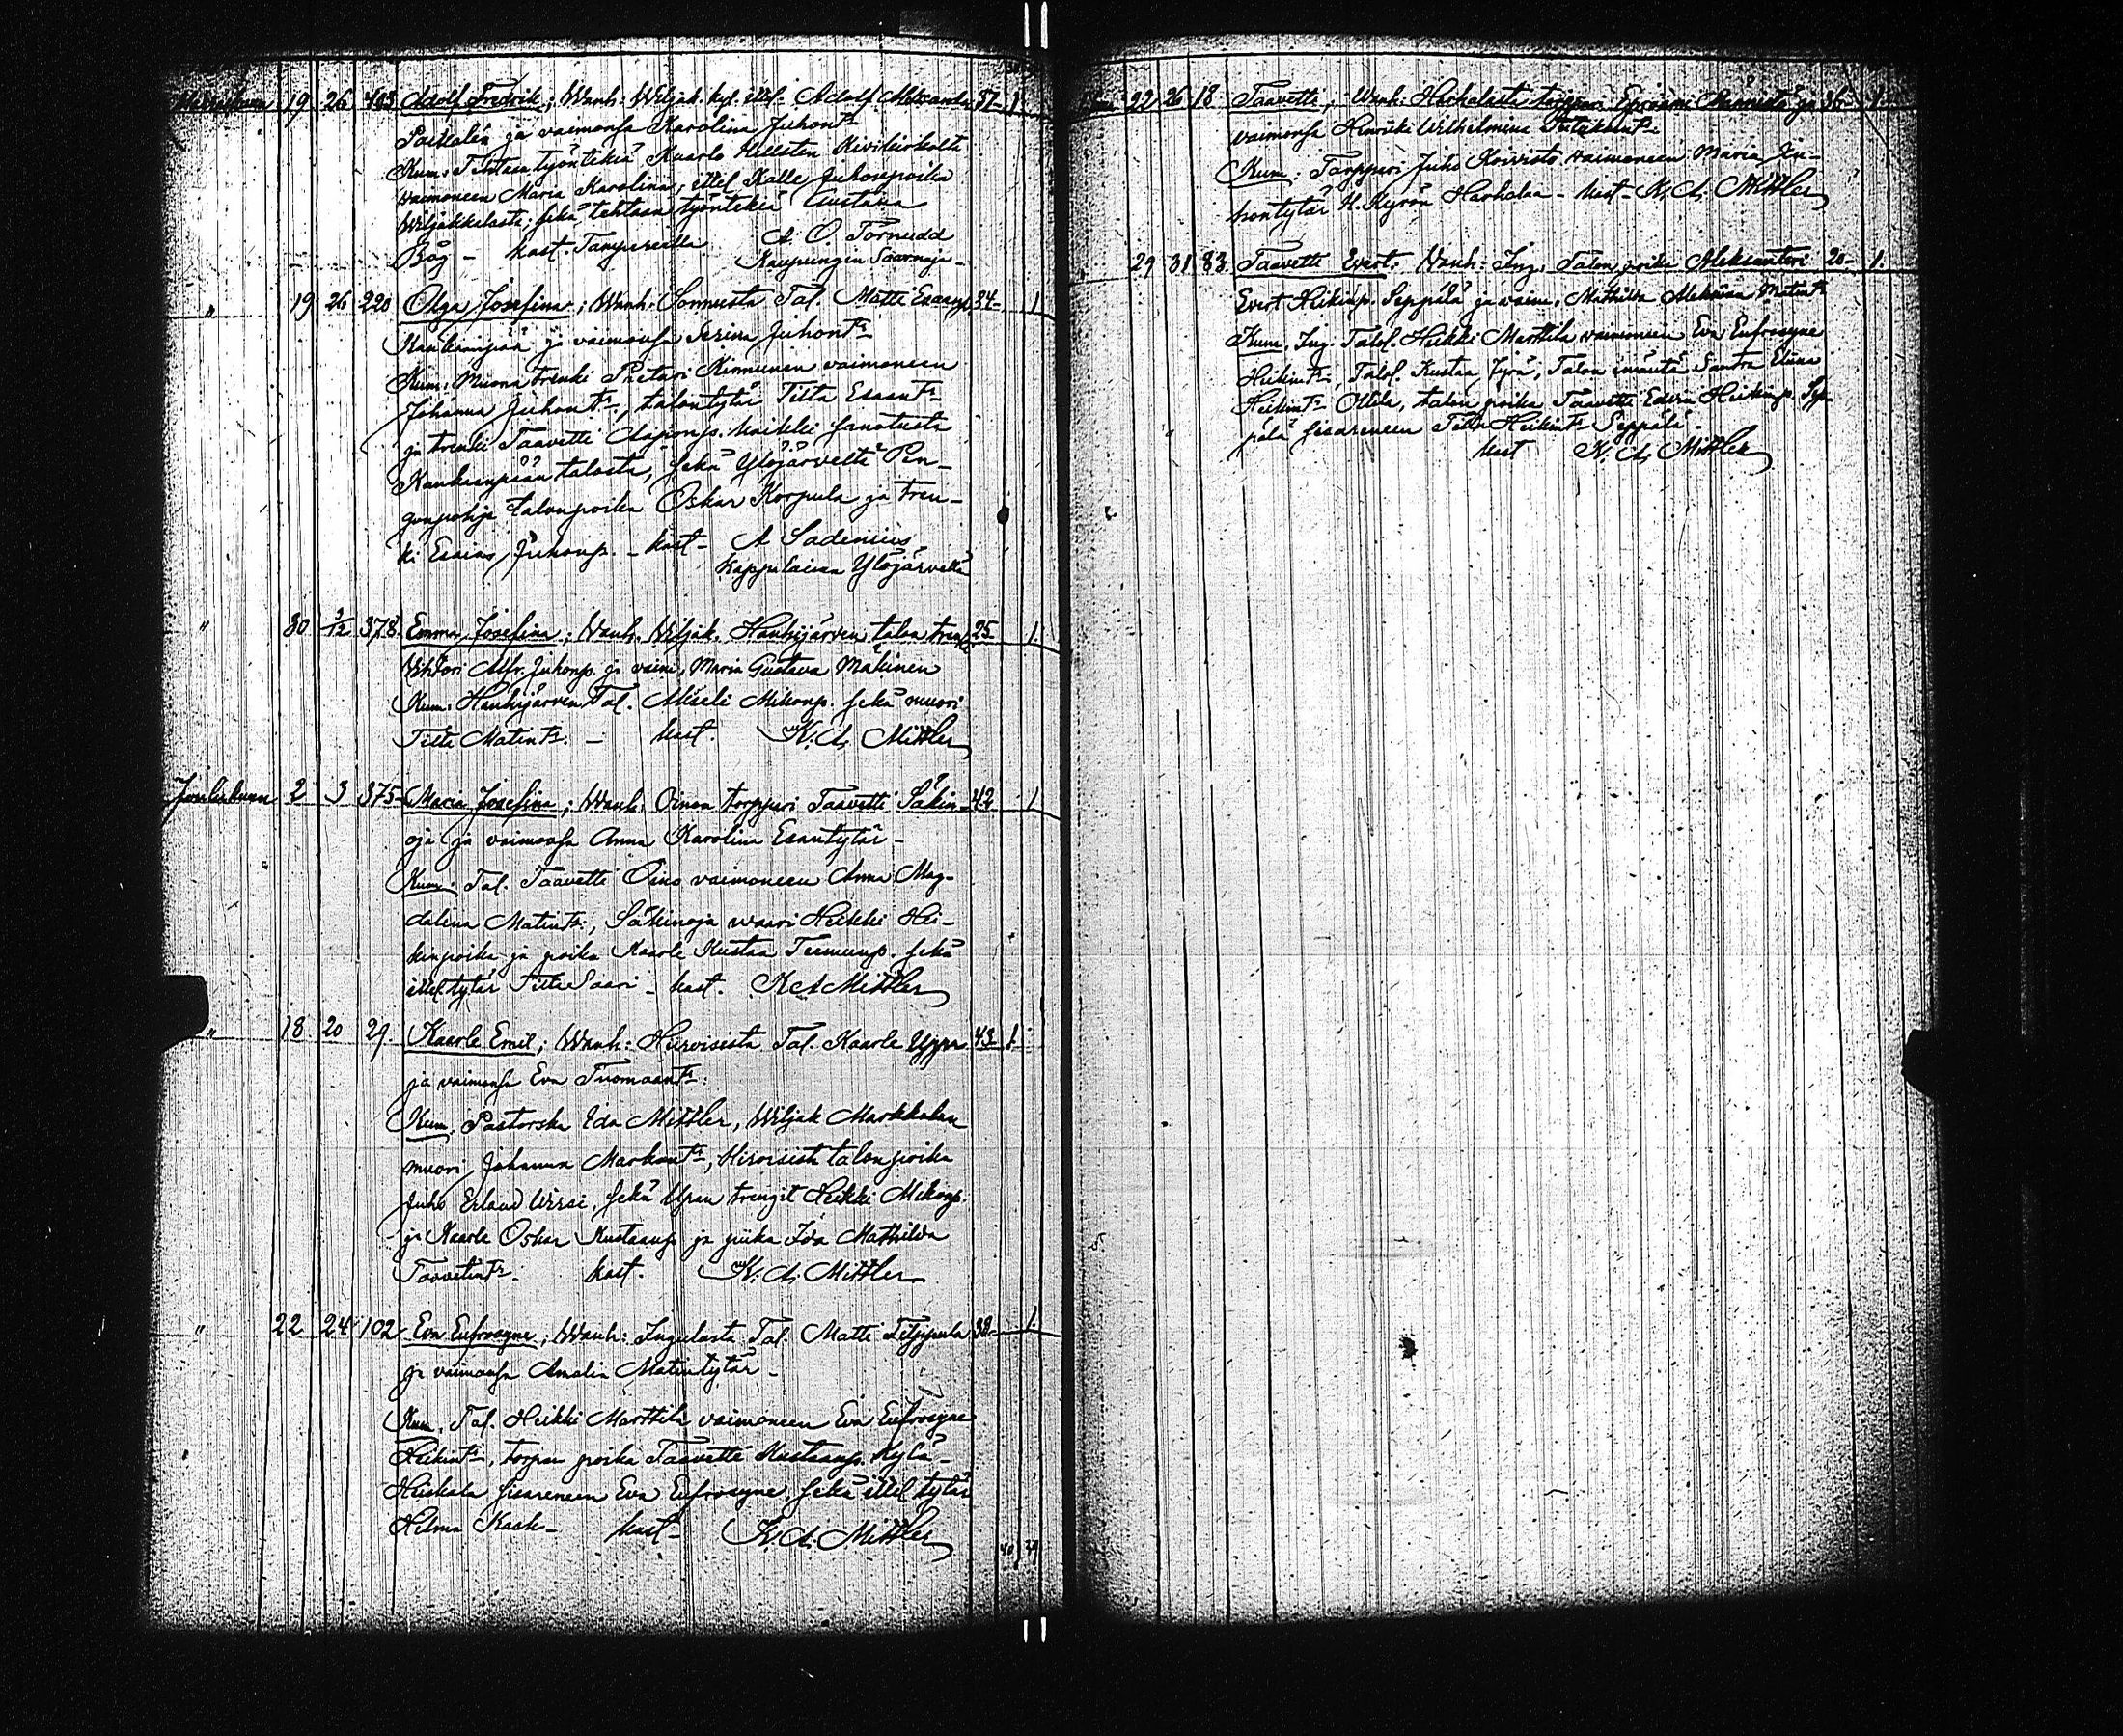 19 26 Adolf Fredrik; Wanh: Wiljak. kyl. ittel. Adolf
ja vaimonsa Karolina Juhont:
Kum: Tehtaan työntekiä Kaarlo Hellsten
vaimoneen Maria Karolina; ittel Kalle Juhonpoika
Wiljakkalasta; sekä tehtaan työntekiä Gustava
Bög - kast. Tampereella A. O. Tornudd
Kaupungin Saarnaja -
" 19 26 220 Olga Josefina; Wanh. Tal. Matti Esaanp. 34 1
Kankaanpää ja vaimonsa Serina Juhont:
Kum: Muona trenki Pietari Kinnunen vaimoneen
Johanna Juhont:, talontytär Tilta Esaant:
ja trenki Taavetti kaikki sanotusta
Kankaanpään talosta, sekä Ylöjärveltä Pen-
gonpohja talonpoika Oskar Korpula ja tren-
ki Esaias Juhonp. - kast - A Sadenius
Kappalainen Ylöjärvellä
" 30 2/12 378. Emma Josefina; Wanh. Wiljak. Hanhijärven talon 25 1
Vihtori Alfr. Juhonp. ja vaim. Maria Gustava Mäkinen
Kum. Hanhijärven Tal. Akseli Mikonp. sekä muori
Tilta Matint:. - kast. K. A. Mittler
Joulukuun 2 3 375 Maria Josefina; Wanh. Oinon torppari Taavetti Säkin- 42 1
oja ja vaimonsa Anna Karolina Esantytär -
Kum: Tal. Taavetti Oino vaimoneen Anna Mag-
dalina Matint:, Säkinoja waari Heikki Hei-
kinpoika ja poika Kaarle Kustaa Teemunp. sekä
ittel. tytär Tilta Saari - kast. K A Mittler
" 18 20 29. Kaarle Emil; Wanh: Hirvisistä Tal. Kaarle 43 1
ja vaimonsa Eva Tuomaant:
Kum. Pastorska Ida Mittler, Wiljak Markkulan
muori Johanna Markunt:, talonpoika
Juho Erland sekä Upan trengit Heikki Mikonp.
ja Kaarle Oskar Kustaanp ja piika Ida Mathilda
Taavetint:. kast. K. A. Mittler
" 22 24 102 Eva Eufrosyne; Wanh: Ingulasta Tal. Matti 38 1
ja vaimonsa Amalia Matintytär -
Kum. Tal. Heikki Marttila vaimoneen Eva Eufrosyne
Heikint:, torpan poika Taavetti Kustaanp. Kylä-
Heiskala sisareneen Eva Eufrosyne, sekä ittel tytär
Hilma Kask - kast - K. A. Mittler
22 26 18 Taavetti; Wanh: torppari 36 1.
vaimonsa Henriki Wilhelmina
Kum: Torppari Juho Koivisto vaimoneen Maria
hontytär H. Kyrön - kast - K. A. Mittler
29 31 83. Taavetti Evert; Wanh: Ing. Talon poika Aleksanteri 20 1.
Evert Heikinp. Seppälä ja vaim. Mathilda Matint:
Kum. Ing. Talol. Heikki Marttila vaimoneen Eva Eufrosyne
Heikint:, Talol. Kustaa Talon emäntä Sandra Elina
Heikint: Ollila, talon poika Taavetti Edvin Heikinp. Sep-
pälä sisareneen Tilta Heikint: Seppälä.
kast K. A. Mittler